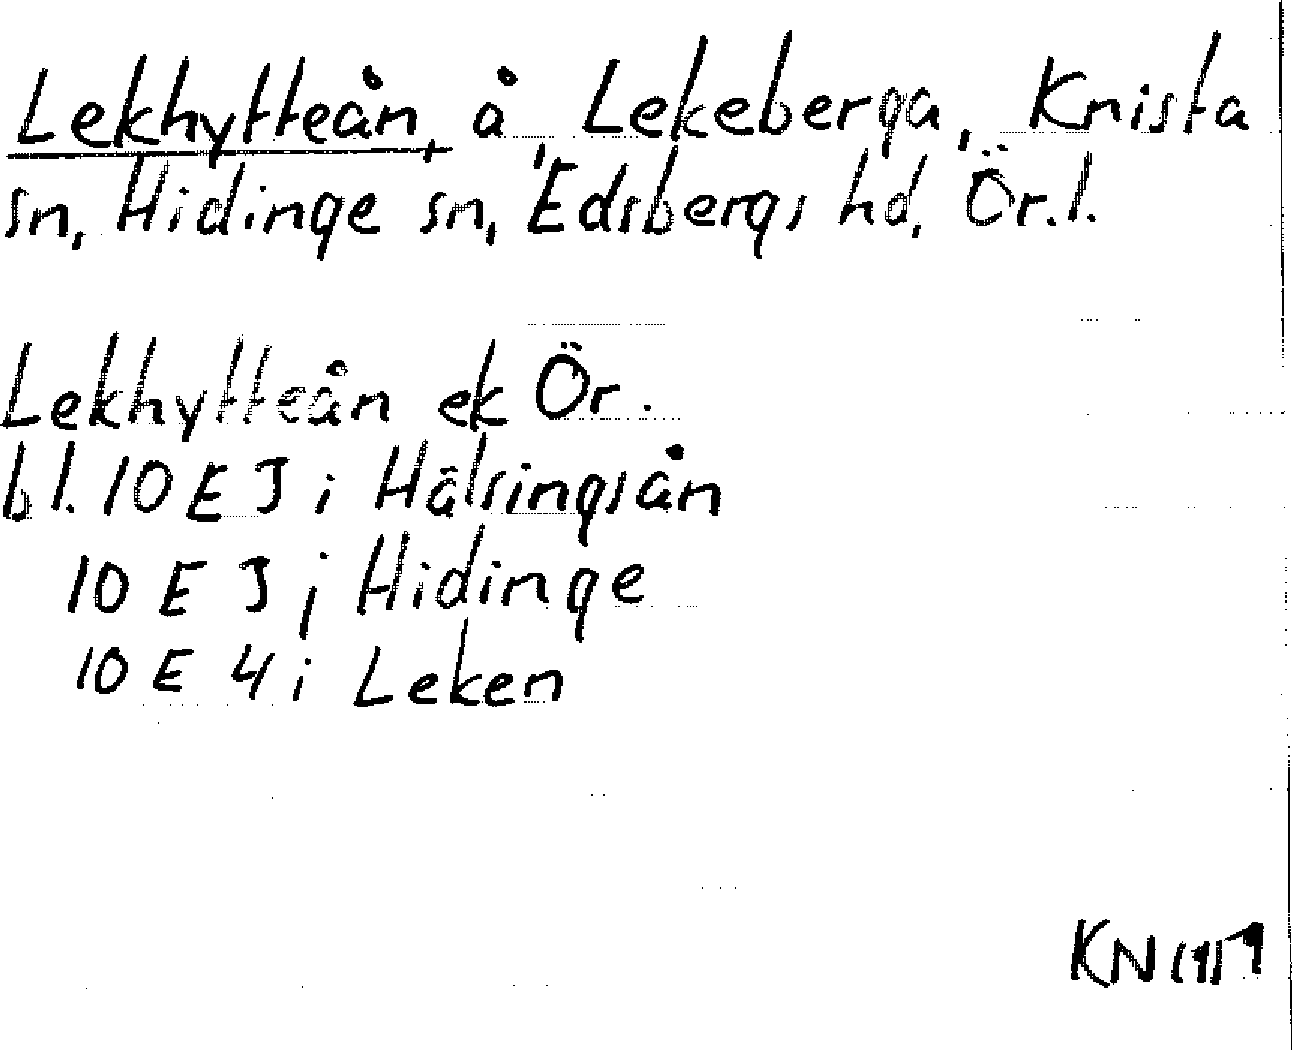 Lekhytteån, å, Lekeberga, Knista
sn, Hidinge sn, Edsbergs hd, Ör.l.
Lekhytteån ek Ör.
bl. 10 E J i Hälsingsån
10 E J i Hidinge
10 E 4 i Leken
KN